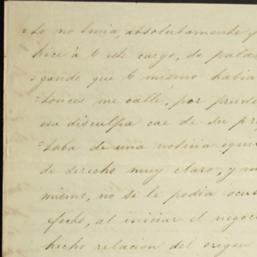 no tenia, absolutamente
hice á V este cargo, de pala
que V mismo habia
tonces me callé, por prude
esa disculpa cae de su pr
taba de una notícia
de derecho muy claro, y a
mismo, no se le podia ocu
efecto, al iniciar el negoc
hecho relacion del origen